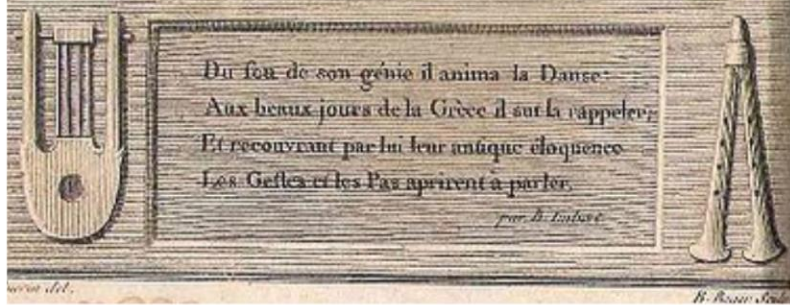 Du feu de son génie il anima la Danse:
Aux beaux jours de la Grèce il sut la rappeler;
Et recouvrant par lui leur antique éloquence
Les Gestes et les Pas aprirent à parler.
par B. Imbert.
del.